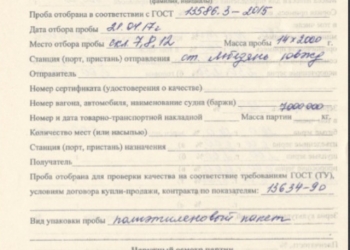 (фамилия, инициалы)
Проба отобрана в соответствии с ГОСТ 13586.3-2015
Дата отбора пробы 21.04.17г.
Место отбора пробы скл 7,8,12 Масса пробы 14х2000 г.
Станция (порт, пристань) отправления ст. Лебедянь ЮВЖД
Номер сертификата (удостоверения о качестве)
Номер вагона, автомобиля, наименование судна (баржи)
Номер и дата товарно-транспортной накладной Масса партии 7000000 кг.
Количество мест (или насыпью)
Станция (порт, пристань) назначения
Получатель
Проба отобрана для проверки качества на соответствие требованиям ГОСТ (ТУ),
условиям договора купли-продажи, контракта по показателям: 13634-90
Вид упаковки пробы полиэтиленовый пакет